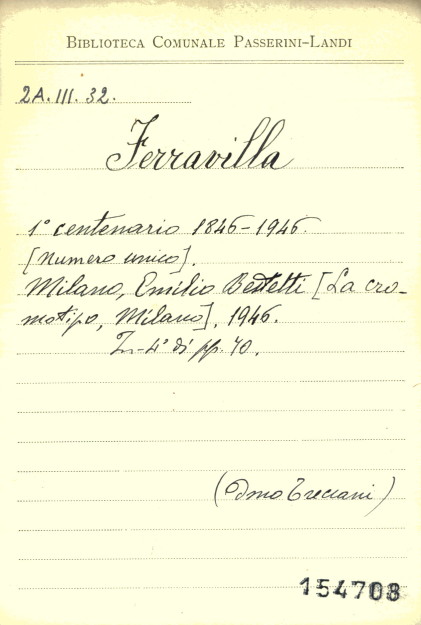 BIBLIOTECA COMUNALE PASSERINI-LANDI
2A. III. 32.
Ferravilla
1° centenario 1846-1946.
[Numero unico].
Milano, Emilio Bestetti [La cro-
motipo, Milano], 1946.
In-4° di pp. 70.
(Dono Treccani)
154708